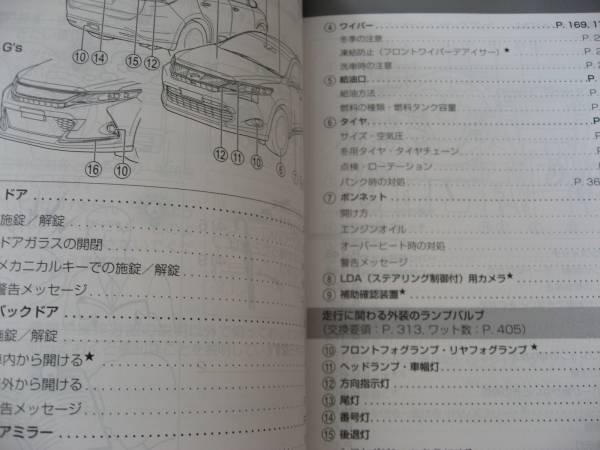 G's
⑩ ⑭ ⑮ ⑫
⑯ ⑩ ⑫ ⑪ ⑩ ⑥
ドア
施錠／解錠
ドアガラスの開閉
メカニカルキーでの施錠／解錠
警告メッセージ
バックドア
施錠／解錠
車内から開ける★
外から開ける
告メッセージ
アミラー
④ ワイパー P. 169, 1
冬季の注意 P. 2
凍結防止（フロントワイパーデアイサー）★ P. 2
洗車時の注意 P.
⑤ 給油口 P.
給油方法 P.
燃料の種類・燃料タンク容量 P.
⑥ タイヤ P.
サイズ・空気圧
冬用タイヤ・タイヤチェーン P.
点検・ローテーション
パンク時の対処 P. 36
⑦ ボンネット
開け方
エンジンオイル
オーバーヒート時の対処
警告メッセージ
⑧ LDA（ステアリング制御付）用カメラ★
⑨ 補助確認装置★
走行に関わる外装のランプバルブ
（交換要領：P. 313, ワット数：P. 405）
⑩ フロントフォグランプ・リヤフォグランプ★
⑪ ヘッドランプ・車幅灯
⑫ 方向指示灯
⑬ 尾灯
⑭ 番号灯
⑮ 後退灯